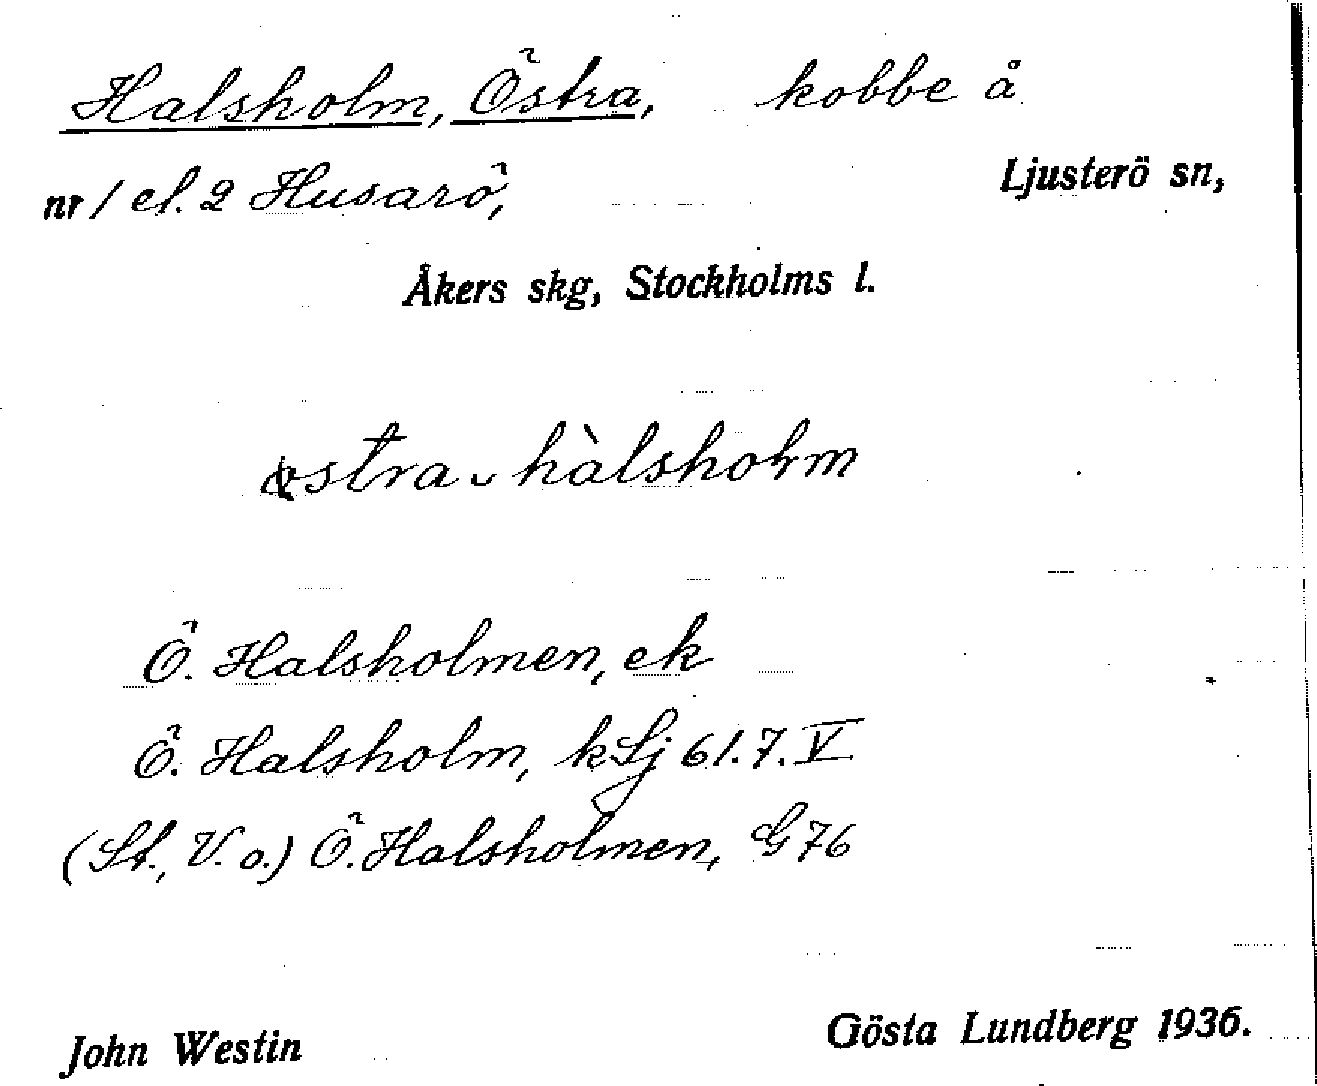 Halsholm, Östra, kobbe å
nr 1 el. 2 Husarö, Ljusterö sn,
Åkers skg, Stockholms l.
østra ᴗ hàlsholm
Ö. Halsholmen, ek
Ö. Halsholm, k Lj 61.7.V
(St., V. o.) Ö. Halsholmen, G 76
John Westin Gösta Lundberg 1936.